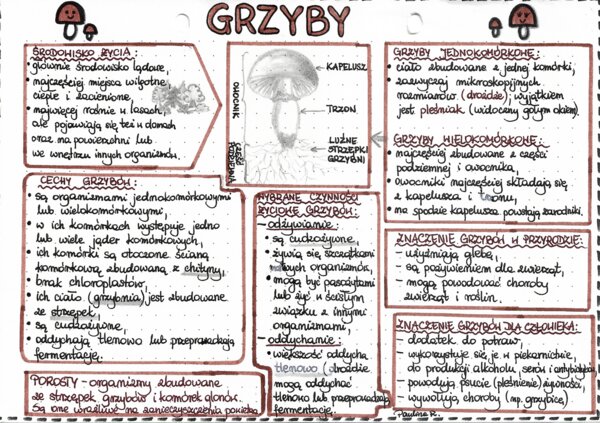 GRZYBY
ŚRODOWISKO ŻYCIA:
• głównie środowisko lądowe,
• najczęściej miejsca wilgotne,
ciepłe i zacienione,
• najwięcej rośnie w lasach,
ale pojawiają się też w domach
oraz na powierzchni lub
we wnętrzu innych organizmów.
OWOCNIK
CZĘŚĆ PODZIEMNA
KAPELUSZ
TRZON
LUŹNE
STRZĘPKI
GRZYBNI
GRZYBY JEDNOKOMÓRKOWE:
• ciało zbudowane z jednej komórki,
• zazwyczaj mikroskopijnych
rozmiarów (drożdże), wyjątkiem
jest pleśniak (widoczny gołym okiem).
GRZYBY WIELOKOMÓRKOWE:
• najczęściej zbudowane z części
podziemnej i owocnika,
• owocniki najczęściej składają się
z kapelusza i trzonu,
• na spodzie kapelusza powstają zarodniki.
CECHY GRZYBÓW:
• są organizmami jednokomórkowymi
lub wielokomórkowymi,
• w ich komórkach występuje jedno
lub wiele jąder komórkowych,
• ich komórki są otoczone ścianą
komórkową zbudowaną z chityny,
• brak chloroplastów,
• ich ciało (grzybnia) jest zbudowane
ze strzępek,
• są cudzożywne,
• oddychają tlenowo lub przeprowadzają
fermentację.
WYBRANE CZYNNOŚCI
ŻYCIOWE GRZYBÓW:
– odżywianie:
• są cudzożywne,
• żywią się szczątkami
organizmów,
• mogą być pasożytami
lub żyć w ścisłym
związku z innymi
organizmami,
– oddychanie:
• większość oddycha
tlenowo (drożdże
mogą oddychać
tlenowo lub przeprowadzać
fermentację.
ZNACZENIE GRZYBÓW W PRZYRODZIE:
– użyźniają glebę,
– są pożywieniem dla zwierząt,
– mogą powodować choroby
zwierząt i roślin.
ZNACZENIE GRZYBÓW DLA CZŁOWIEKA:
– dodatek do potraw,
– wykorzystuje się je w piekarnictwie,
do produkcji alkoholu, serów i antybiotyków,
– powodują psucie (pleśnienie) żywności,
– wywołują choroby (np. grzybice).
Paulina K.
POROSTY – organizmy zbudowane
ze strzępek grzybów i komórek glonów.
Są one wrażliwe na zanieczyszczenia powietrza.